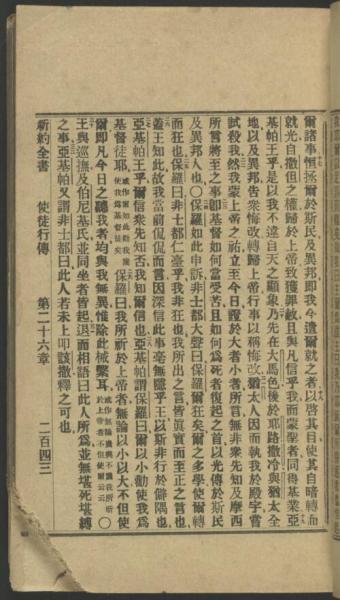 爾諸事恒拯爾於斯民及異邦即我今遣爾就之者以啓其目使其自暗轉而
就光自撒但之權歸於上帝致獲罪赦且與凡信乎我而蒙聖者同得基業亞
基帕王乎是以我不違自天之顯象乃先在大馬色後於耶路撒冷與猶太全
地以及異邦告衆悔改轉歸上帝行事以稱悔改猶太人因而執我於殿宇嘗
試殺我然我蒙上帝之祐立至今日證於大者小者所言無非衆先知及摩西
所言將至之事即基督如何當受苦且如何爲死者復起之首以光傳於斯民
及異邦人也〇保羅如此申訴非士都大聲曰保羅爾狂矣爾之多學使爾轉
而狂也保羅曰非士都仁臺乎我非狂也我所出之言皆眞實而至正之言也
蓋王知此故我當前侃侃而言因深信此事毫無隱乎王以斯非行於僻隅也
亞基帕王乎爾信衆先知否我知爾信也亞基帕謂保羅曰爾以小勸使我爲
基督徒耶 保羅曰我所祈於上帝者無論以小以大不但使
爾即凡今日之聽我者均與我無異惟除此械繫耳 〇
王與巡撫及伯尼基氏並同坐者皆起退而相語曰此人所爲並無堪死堪縛
之事亞基帕又謂非士都曰此人若未上叩該撒釋之可也
新約全書 使徒行傳 第二十六章 二百四三